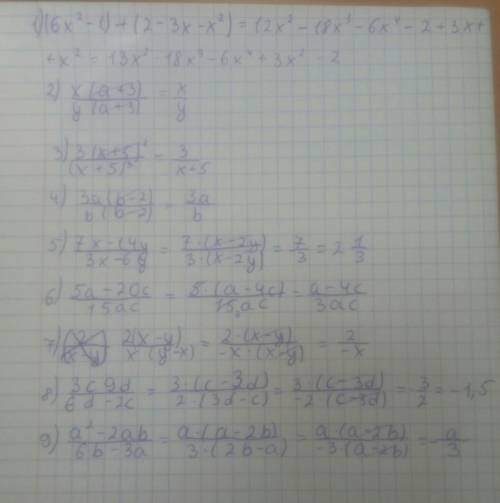 1)(6x²-1)+(2-3x-x²)=12x²-18x³-6x⁴-2+3x+
+x²=13x²-18x³-6x⁴+3x²-2
2) x(a+3)/y(a+3) = x/y
3) 3(x+5)²/(x+5)³ = 3/x+5
4) 3a(b-2)/b(b-2) = 3a/b
5) 7x-14y/3x-6y = 7·(x-2y)/3·(x-2y) = 7/3 = 2 1/3
6) 5a-20c/15ac = 5·(a-4c)/15ac = a-4c/3ac
7) 2(x-y)/x·(y-x) = 2·(x-y)/-x·(x-y) = 2/-x
8) 3c 9d/6d-2c = 3·(c-3d)/2·(3d-c) = 3·(c-3d)/-2·(c-3d) = 3/2 = -1,5
9) a²-2ab/6b-3a = a·(a-2b)/3·(2b-a) = a(a-2b)/-3·(a-2b) = -a/3